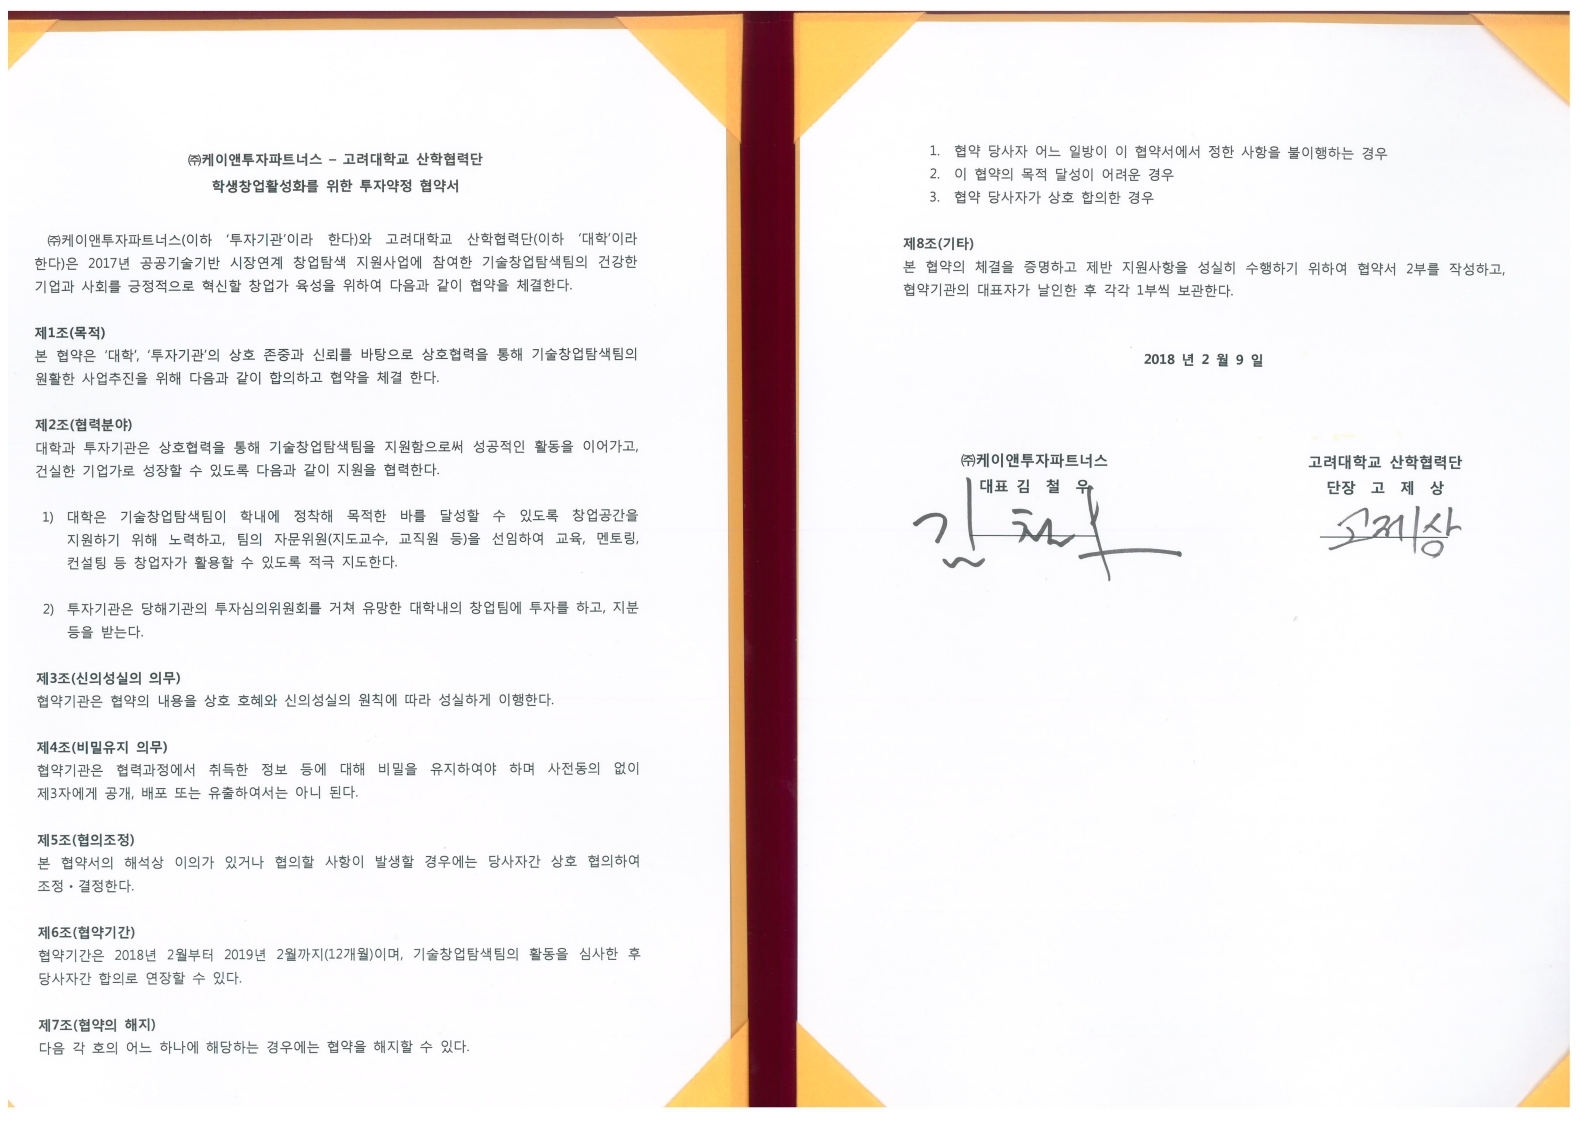 ㈜케이앤투자파트너스 – 고려대학교 산학협력단
학생창업활성화를 위한 투자약정 협약서
㈜케이앤투자파트너스(이하 '투자기관'이라 한다)와 고려대학교 산학협력단(이하 '대학'이라
한다)은 2017년 공공기술기반 시장연계 창업탐색 지원사업에 참여한 기술창업탐색팀의 건강한
기업과 사회를 긍정적으로 혁신할 창업가 육성을 위하여 다음과 같이 협약을 체결한다.
제1조(목적)
본 협약은 '대학', '투자기관'의 상호 존중과 신뢰를 바탕으로 상호협력을 통해 기술창업탐색팀의
원활한 사업추진을 위해 다음과 같이 합의하고 협약을 체결 한다.
제2조(협력분야)
대학과 투자기관은 상호협력을 통해 기술창업탐색팀을 지원함으로써 성공적인 활동을 이어가고,
건실한 기업가로 성장할 수 있도록 다음과 같이 지원을 협력한다.
1) 대학은 기술창업탐색팀이 학내에 정착해 목적한 바를 달성할 수 있도록 창업공간을
지원하기 위해 노력하고, 팀의 자문위원(지도교수, 교직원 등)을 선임하여 교육, 멘토링,
컨설팅 등 창업자가 활용할 수 있도록 적극 지도한다.
2) 투자기관은 당해기관의 투자심의위원회를 거쳐 유망한 대학내의 창업팀에 투자를 하고, 지분
등을 받는다.
제3조(신의성실의 의무)
협약기관은 협약의 내용을 상호 호혜와 신의성실의 원칙에 따라 성실하게 이행한다.
제4조(비밀유지 의무)
협약기관은 협력과정에서 취득한 정보 등에 대해 비밀을 유지하여야 하며 사전동의 없이
제3자에게 공개, 배포 또는 유출하여서는 아니 된다.
제5조(협의조정)
본 협약서의 해석상 이의가 있거나 협의할 사항이 발생할 경우에는 당사자간 상호 협의하여
조정・결정한다.
제6조(협약기간)
협약기간은 2018년 2월부터 2019년 2월까지(12개월)이며, 기술창업탐색팀의 활동을 심사한 후
당사자간 합의로 연장할 수 있다.
제7조(협약의 해지)
다음 각 호의 어느 하나에 해당하는 경우에는 협약을 해지할 수 있다.
1. 협약 당사자 어느 일방이 이 협약서에서 정한 사항을 불이행하는 경우
2. 이 협약의 목적 달성이 어려운 경우
3. 협약 당사자가 상호 합의한 경우
제8조(기타)
본 협약의 체결을 증명하고 제반 지원사항을 성실히 수행하기 위하여 협약서 2부를 작성하고,
협약기관의 대표자가 날인한 후 각각 1부씩 보관한다.
2018 년 2 월 9 일
㈜케이앤투자파트너스
대표 김 철 우
김철우
고려대학교 산학협력단
단장 고 제 상
고제상